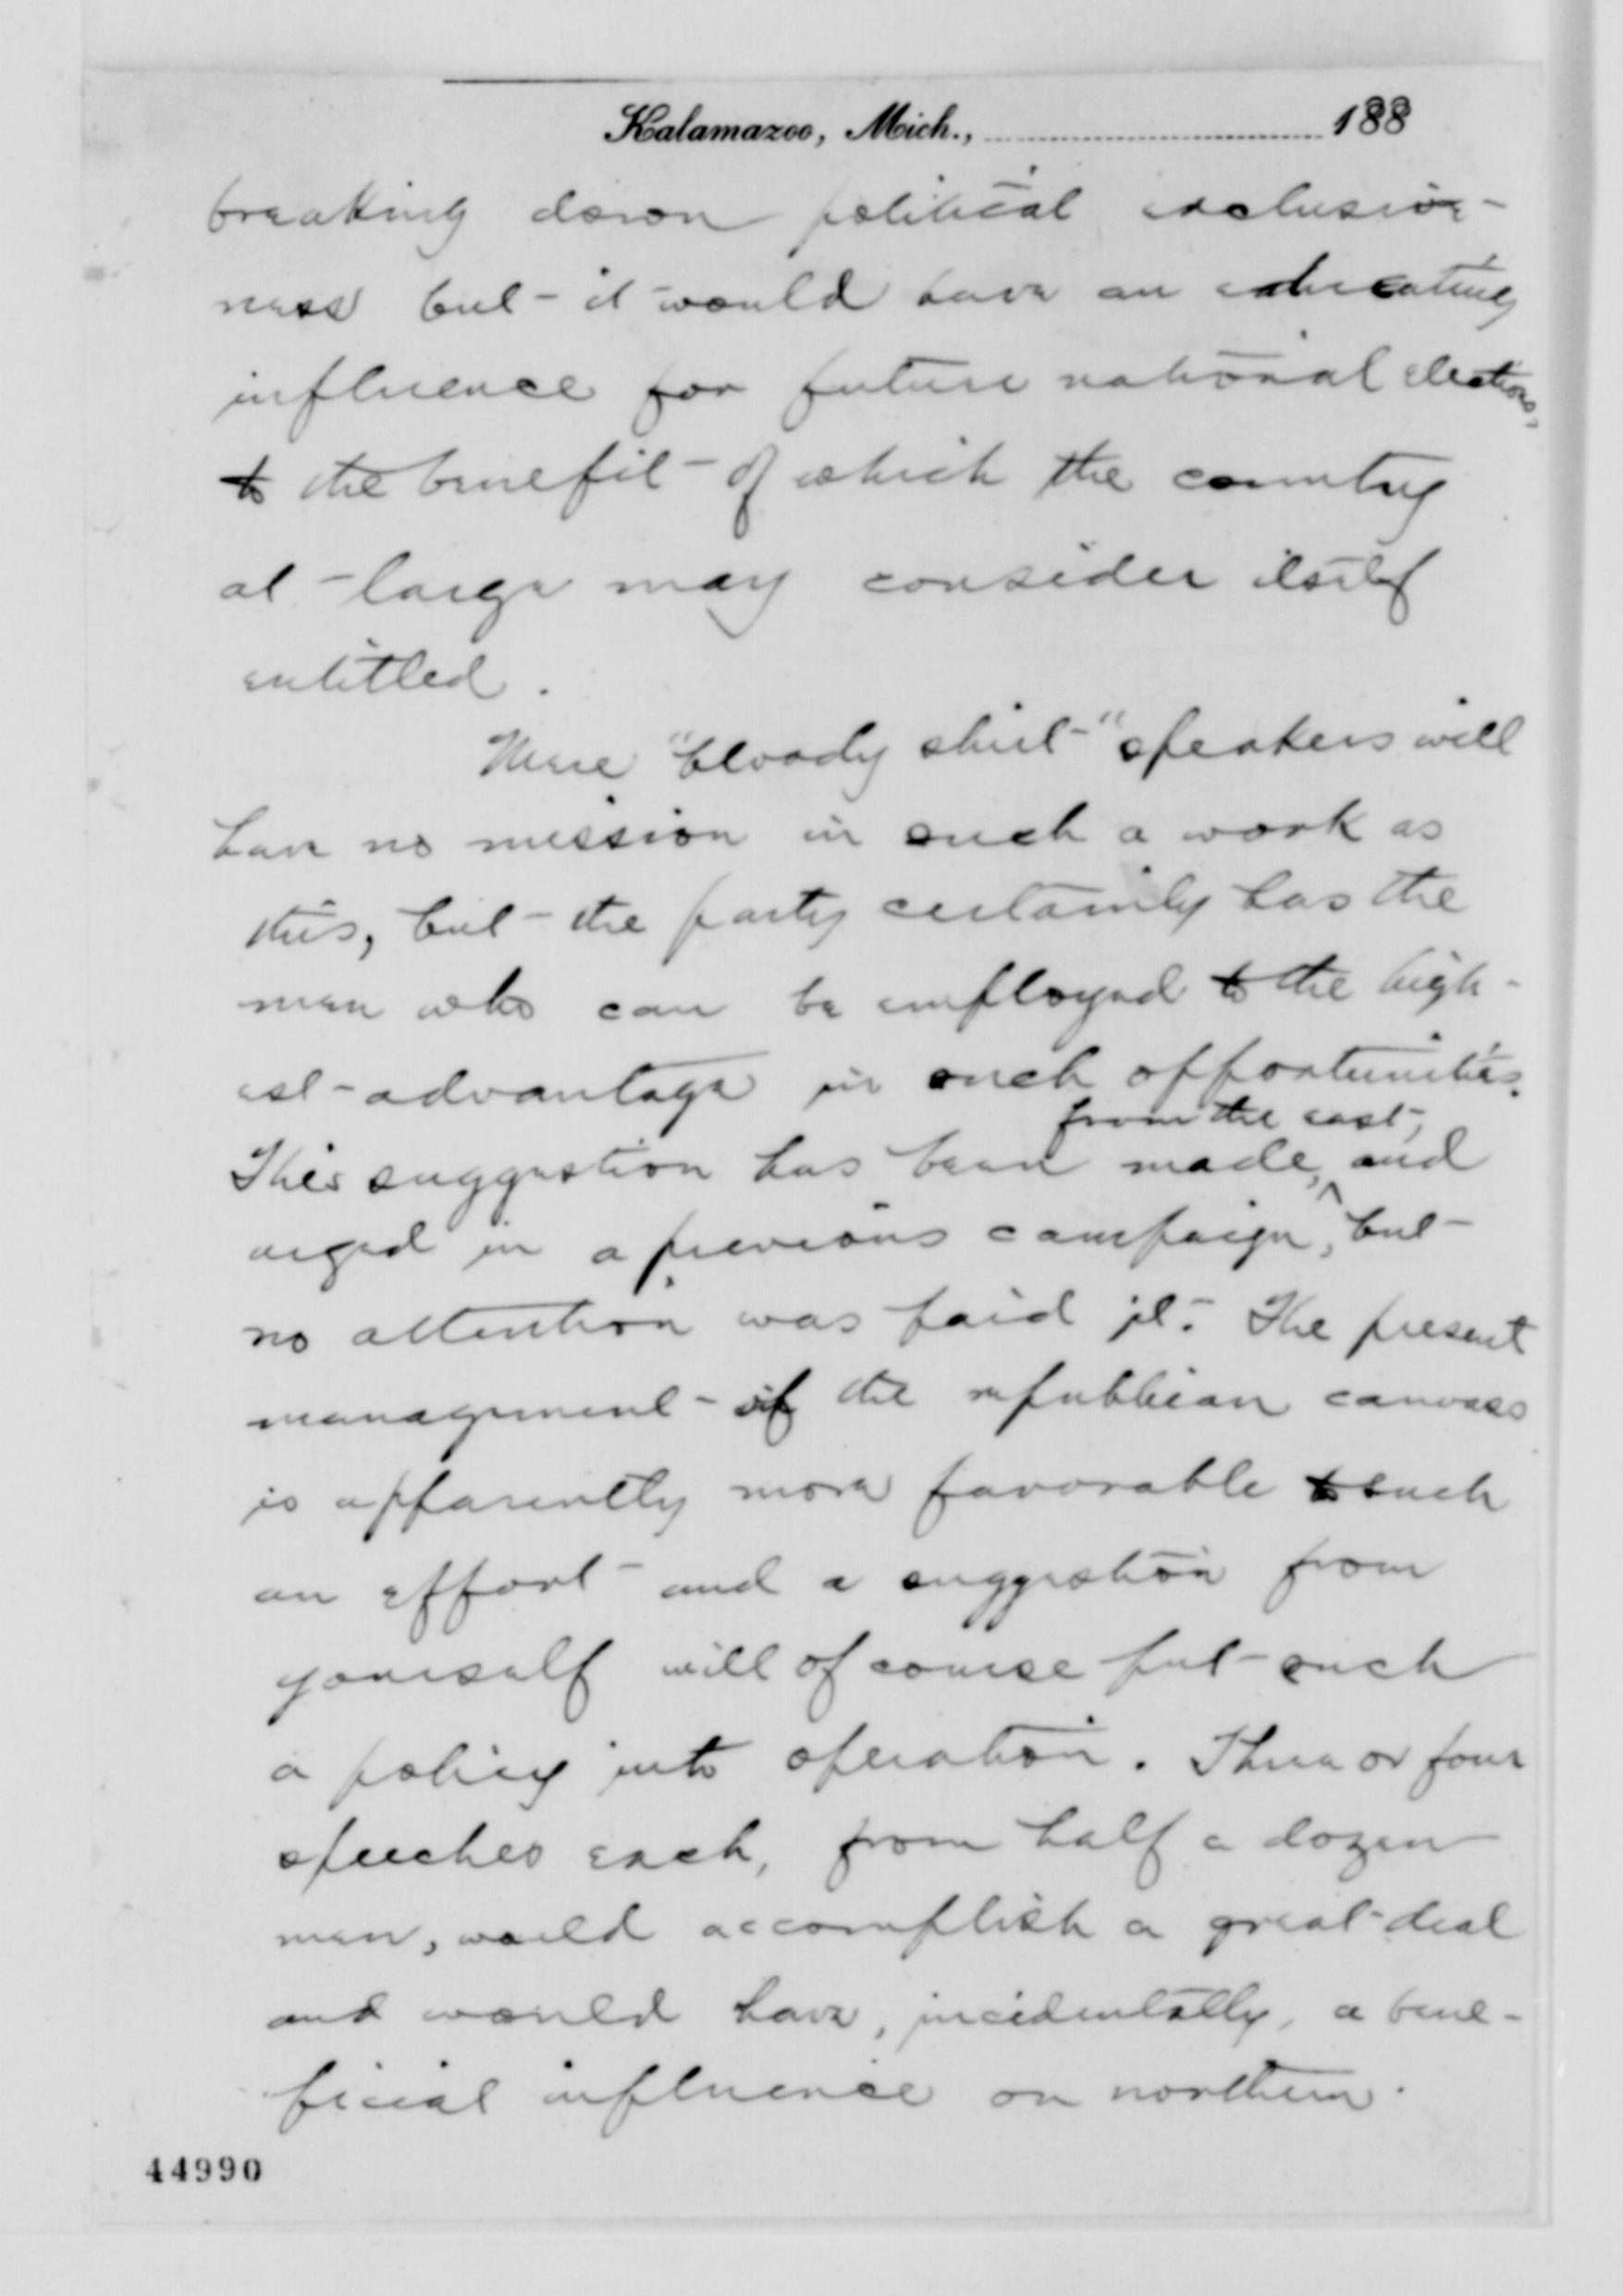 Kalamazoo, Mich., 188
breaking down political exclusive-
ness but it would have an educating
influence for future national elections,
to the benefit of which the country
at large may consider itself
entitled.
Mere "bloody shirt" speakers will
have no mission in such a work as
this, but the party certainly has the
men who can be employed to the high-
est advantage in such opportunities.
from the east,
This suggestion has been made, and
urged in a previous campaign, but
no attention was paid it. The present
management of the republican canvass
is apparently more favorable to such
an effort and a suggestion from
yourself will of course put such
a policy into operation. Three or four
speeches each, from half a dozen
men, would accomplish a great deal
and would have, incidentally, a bene-
ficial influence on northern
44990